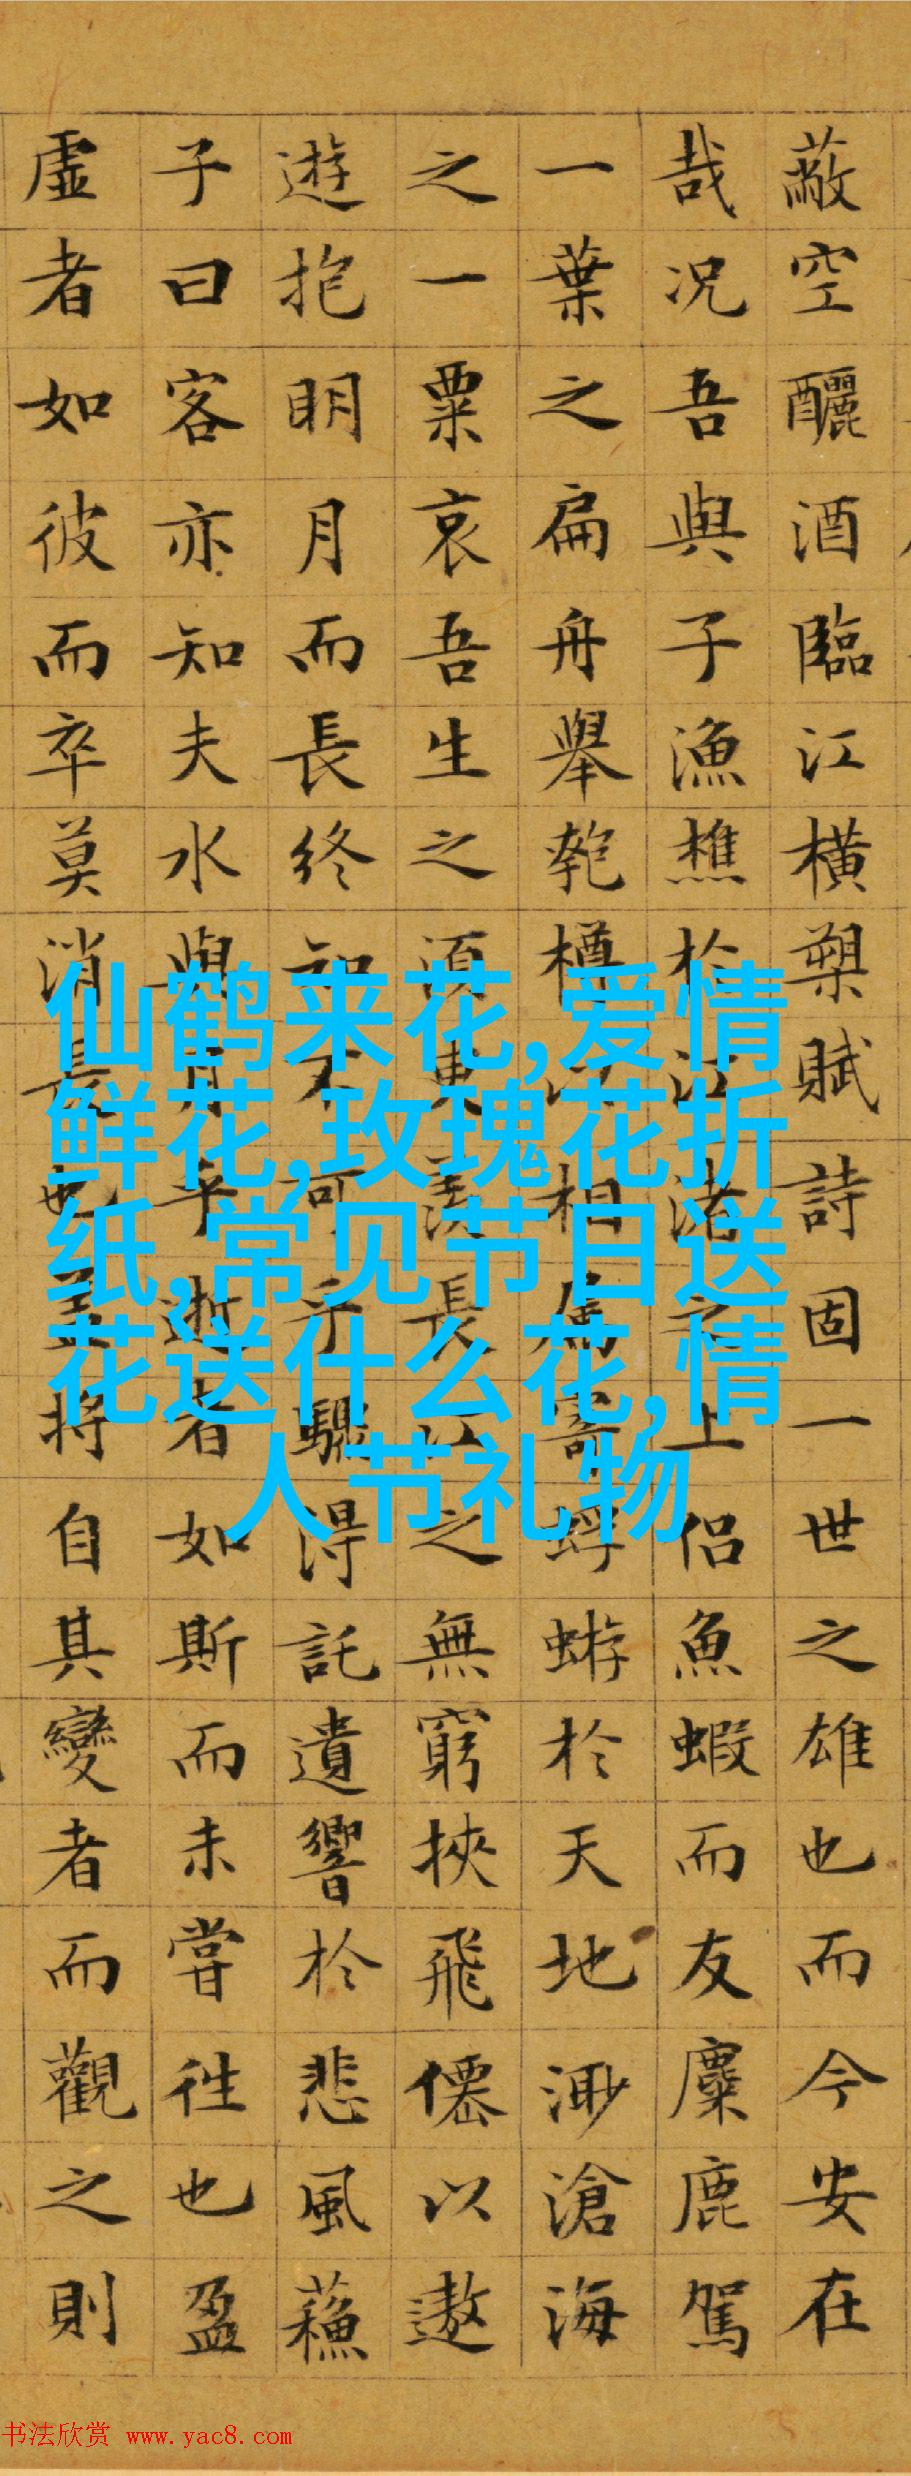 蔽空釃酒臨江橫槊賦詩固一世之雄也而今安在
哉况吾與子漁樵於江渚之上侶魚蝦而友麋鹿駕
一葉之扁舟舉匏樽以相屬寄蜉蝣於天地渺滄海
之一粟哀吾生之須臾羨長江之無窮挾飛僊以遨
遊抱明月而長終知不可乎驟得託遺響於悲風蘓
子曰客亦知夫水與月乎逝者如斯而未嘗往也盈
虛者如彼而卒莫消長也蓋將自其變者而觀之則
仙鹤来花,爱情
鲜花,玫瑰花折
纸,常见节日送
花送什么花,情
人节礼物
书法欣赏 www.yac8.com